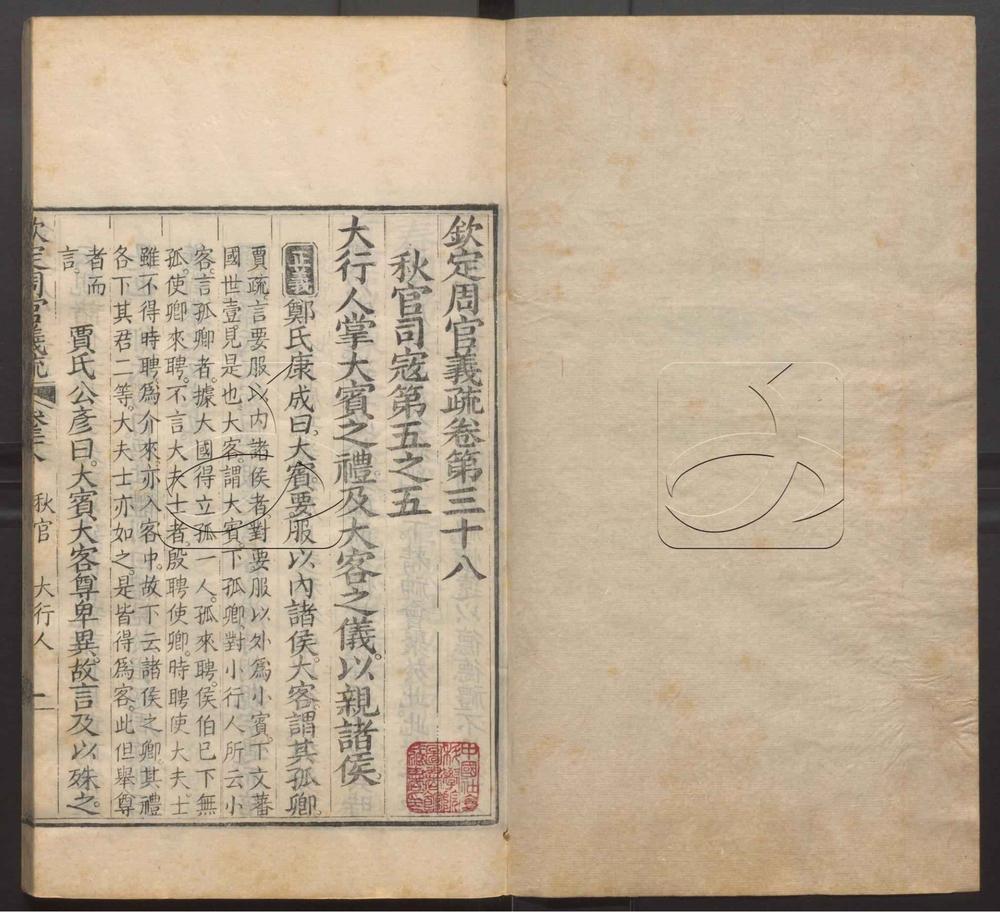 欽定周官義疏卷第三十八
秋官司寇第五之五
大行人掌大賓之禮及大客之儀以親諸侯。
正義鄭氏康成曰。大賓要服以內諸侯。大客謂其孤卿。
賈疏。言要服以內諸侯者對要服以外爲小賓。下文蕃
國世壹見是也。大客。謂大賓下孤卿。對小行人所云小
客。言孤卿者。據大國得立孤一人。孤來聘。侯伯已下無
孤。使卿來聘。不言大夫士者。殷聘使卿。時聘使大夫。士
雖不得時聘。爲介來。亦入客中。故下云諸侯之卿其禮
各下其君二等。大夫士亦如之。是皆得爲客。此但舉尊
者而
言。
賈氏公彥曰。大賓大客尊卑異。故言及以殊之。
欽定周官義疏 卷三十八 秋官 大行人 一